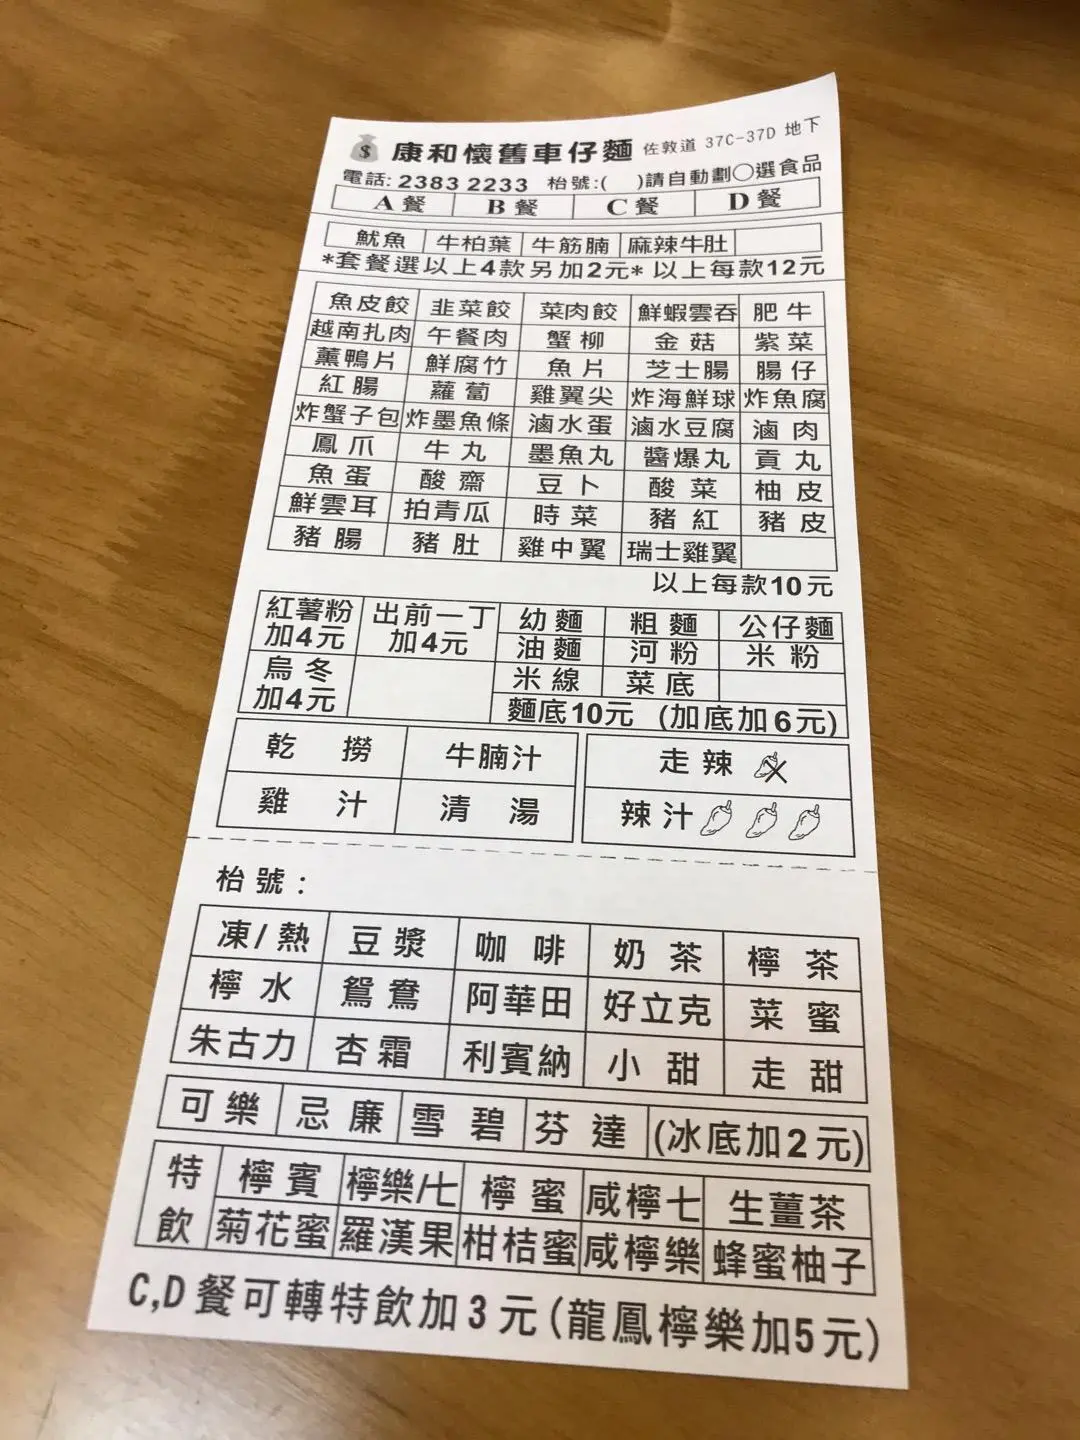 康和懷舊車仔麵 佐敦道 37C-37D 地下
電話: 2383 2233 枱號:( )請自動劃○選食品
A 餐 B 餐 C 餐 D 餐
魷魚 牛柏葉 牛筋腩 麻辣牛肚
*套餐選以上4款另加2元* 以上每款12元
魚皮餃 韭菜餃 菜肉餃 鮮蝦雲吞 肥牛
越南扎肉 午餐肉 蟹柳 金菇 紫菜
薰鴨片 鮮腐竹 魚片 芝士腸 腸仔
紅腸 蘿蔔 雞翼尖 炸海鮮球 炸魚腐
炸蟹子包 炸墨魚條 滷水蛋 滷水豆腐 滷肉
鳳爪 牛丸 墨魚丸 醬爆丸 貢丸
魚蛋 酸齋 豆卜 酸菜 柚皮
鮮雲耳 拍青瓜 時菜 豬紅 豬皮
豬腸 豬肚 雞中翼 瑞士雞翼
以上每款10元
紅薯粉 出前一丁 幼麵 粗麵 公仔麵
加4元 加4元 油麵 河粉 米粉
烏冬 米線 菜底
加4元 麵底10元 (加底加6元)
乾撈 牛腩汁 走辣
雞汁 清湯 辣汁
枱號:
凍/熱 豆漿 咖啡 奶茶 檸茶
檸水 鴛鴦 阿華田 好立克 菜蜜
朱古力 杏霜 利賓納 小甜 走甜
可樂 忌廉 雪碧 芬達 (冰底加2元)
特飲 檸賓 檸樂/七 檸蜜 咸檸七 生薑茶
菊花蜜 羅漢果 柑桔蜜 咸檸樂 蜂蜜柚子
C,D餐可轉特飲加3元(龍鳳檸樂加5元)